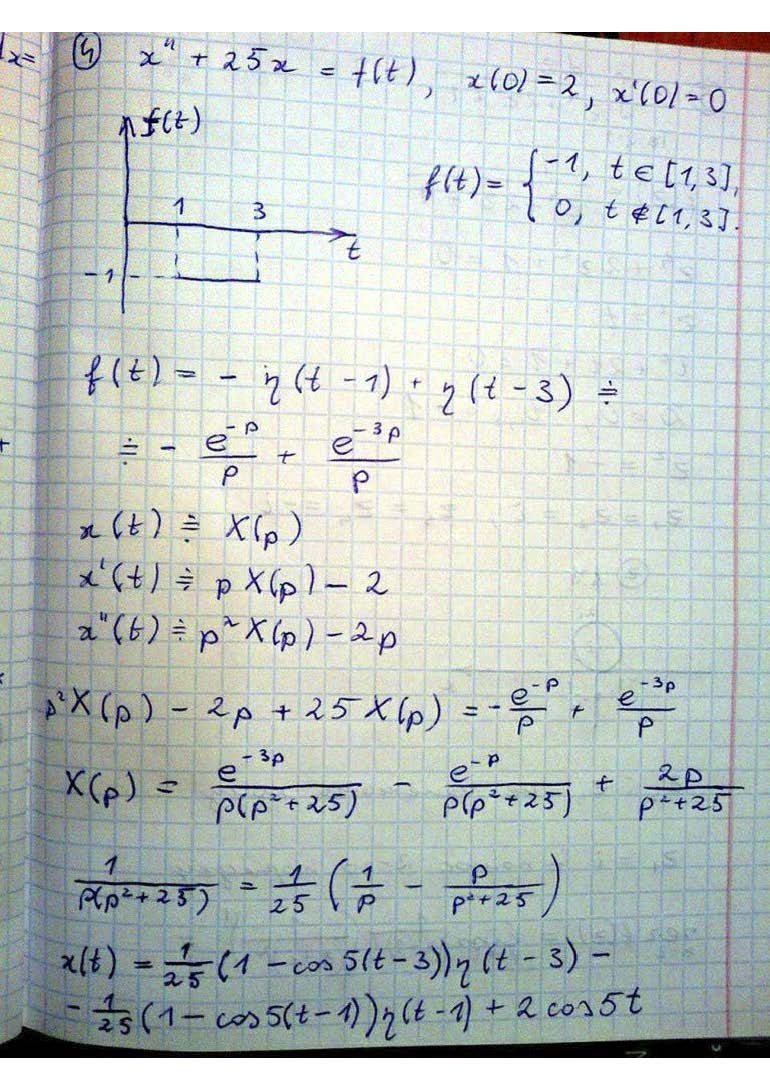 ④ x'' + 25x = f(t), x(0) = 2, x'(0) = 0
f(t)
f(t) = { -1, t ∈ [1, 3],
0, t ∉ [1, 3].
1 3
t
-1
f(t) = - η(t - 1) + η(t - 3) ≑
≑ - e^{-p}/p + e^{-3p}/p
x(t) ≑ X(p)
x'(t) ≑ pX(p) - 2
x''(t) ≑ p²X(p) - 2p
p²X(p) - 2p + 25X(p) = - e^{-p}/p + e^{-3p}/p
X(p) = e^{-3p}/(p(p² + 25)) - e^{-p}/(p(p² + 25)) + 2p/(p² + 25)
1/(p(p² + 25)) = 1/25 (1/p - p/(p² + 25))
x(t) = 1/25 (1 - cos 5(t - 3)) η(t - 3) -
- 1/25 (1 - cos 5(t - 1)) η(t - 1) + 2 cos 5t